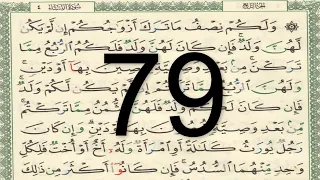 ٤ سُورَةُ النِّسَاءِ الجُزْءُ الرَّابِعُ
وَلَكُمْ نِصْفُ مَا تَرَكَ أَزْوَاجُكُمْ إِن لَّمْ يَكُن
لَّهُنَّ وَلَدٌ فَإِن كَانَ لَهُنَّ وَلَدٌ فَلَكُمُ ٱلرُّبُعُ مِمَّا
تَرَكْنَ مِنۢ بَعْدِ وَصِيَّةٍ يُوصِينَ بِهَآ أَوْ دَيْنٍ
وَلَهُنَّ ٱلرُّبُعُ مِمَّا تَرَكْتُمْ إِن لَّمْ يَكُن لَّكُمْ وَلَدٌ
فَإِن كَانَ لَكُمْ وَلَدٌ فَلَهُنَّ ٱلثُّمُنُ مِمَّا تَرَكْتُم
مِّنۢ بَعْدِ وَصِيَّةٍ تُوصُونَ بِهَآ أَوْ دَيْنٍ وَإِن كَانَ
رَجُلٌ يُورَثُ كَلَالَةً أَوِ ٱمْرَأَةٌ وَلَهُۥٓ أَخٌ أَوْ أُخْتٌ فَلِكُلِّ
وَاحِدٍ مِّنْهُمَا ٱلسُّدُسُ فَإِن كَانُوٓا۟ أَكْثَرَ مِن ذَٰلِكَ
79